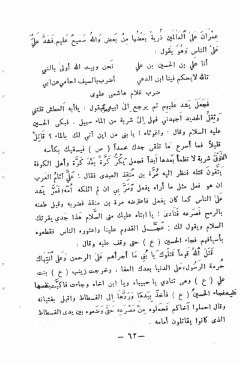 عمران على العالمين ذرية بعضها من بعض والله سميع عليم فشد على
الناس وهو يقول :
أنا علي بن الحسين بن علي نحن وبيت الله أولى بالنبي
تالله لا يحكم فينا ابن الدعي أضرب بالسيف أحامي عن أبي
ضرب غلام هاشمي علوي
فجعل يشد عليهم ثم يرجع إلى أبيه فيقول : يا أباه العطش قتلني
وثقل الحديد أجهدني فهل إلى شربة من الماء سبيل . فبكى الحسين
عليه السلام وقال : واغوثاه ! يا بني من أين آتي لك بالماء ؟ قاتل
قليلاً فما أسرع ما تلقى جدك محمداً ( ص ) فيسقيك بكأسه
الأوفى شربة لا تظمأ بعدها أبداً فجعل يكر كرة بعد كرة وأهل الكوفة
يتقون قتله فنظر إليه مرة بن منقذ العبدي فقال : علي آثام العرب
إن هو فعل مثل ما أراه يفعل ومر بي إن لم أثكله أمه فمر يشد
على الناس كما كان يفعل فاعترضه مرة بن منقذ فضربه وقيل طعنه
بالرمح فصرعه فنادى : يا أبتاه عليك مني السلام هذا جدي يقرئك
السلام ويقول لك : عجل القدوم علينا واعتوره الناس فقطعوه
بأسيافهم فجاء الحسين ( ع ) حتى وقف عليه وقال :
قتل الله قوماً قتلوك يا بني ما أجرأهم على الرحمن وعلى انتهاك
حرمة الرسول على الدنيا بعدك العفا ، وخرجت زينب ( ع ) بنت
علي ( ع ) وهي تنادي يا حبيباه ويا ابن أخاه وجاءت فأكبت
عليه فجاء الحسين ( ع ) فأخذ بيدها وردها إلى الفسطاط وأقبل بفتيانه
وقال احملوا أخاكم فحملوه من مصرعه حتى وضعوه بين يدي الفسطاط
الذي كانوا يقاتلون أمامه .
– ٦٢ –